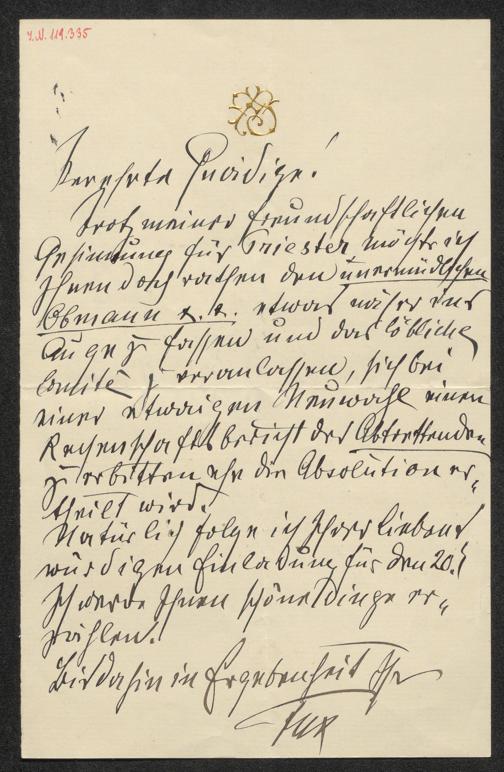 I.N. 119.335
Verehrte Gnädige!
Trotz meiner freundschaftlichen
Gesinnung für Triester möchte ich
Ihnen doch rathen den unermüdlichen
Obmann etwas näher ins
Auge zu fassen und das löbliche
Comité zu veranlassen, sich bei
einer etwaigen Neuwahl einen
Rechenschaftsbericht des Abtrettenden
zu erbitten ehe die Absolution er-
theilt wird.
Natürlich folge ich Ihrer liebens
würdigen Einladung für den 20.!
Ich werde Ihnen schöne Dinge er-
zählen!
Bis dahin in Ergebenheit Ihr